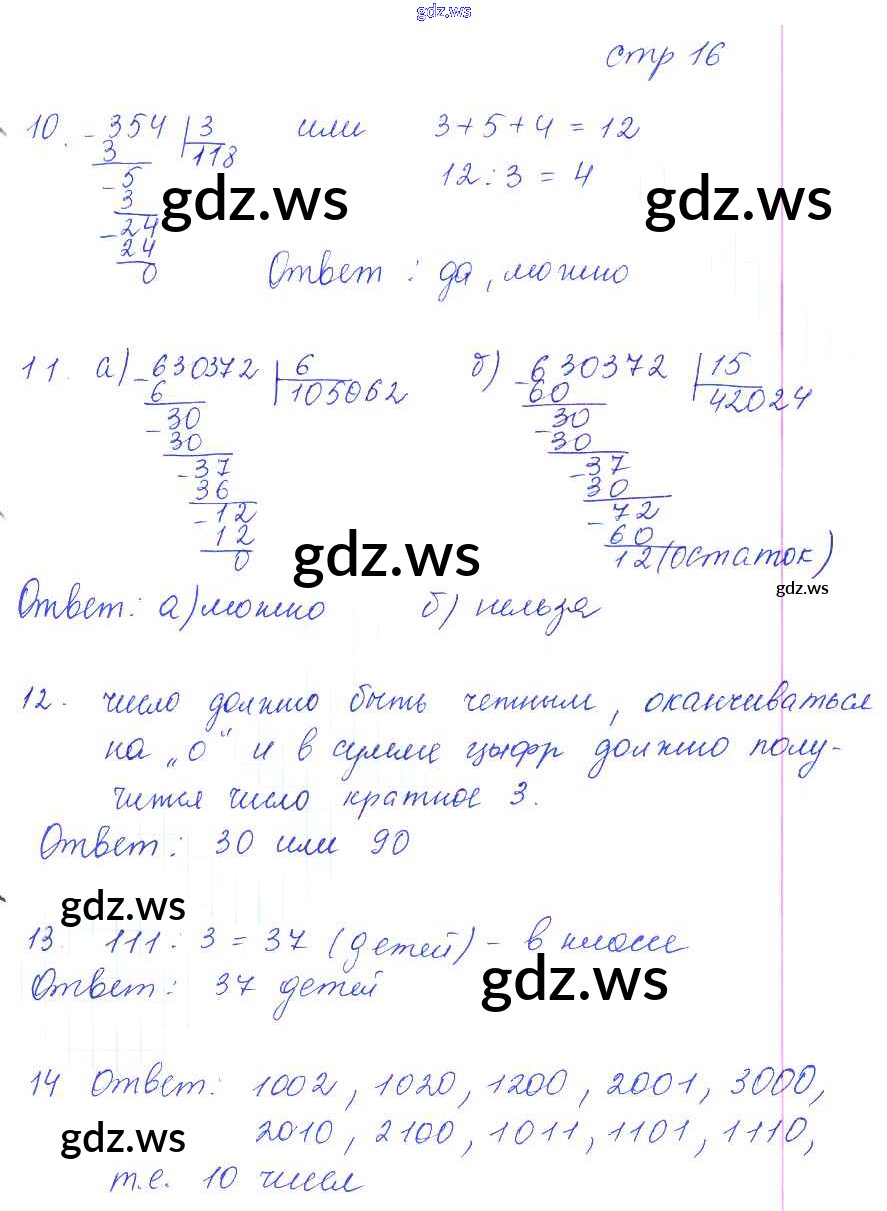 gdz.ws
стр 16
10. - 354 | 3 или 3 + 5 + 4 = 12
3 118
- 5 12 : 3 = 4
3 gdz.ws gdz.ws
- 24
24
0 Ответ : да, можно
11. а) - 630372 | 6 б) - 630372 | 15
6 105062 60 42024
- 30 - 30
30 30
- 37 - 37
36 30
- 12 - 72
12 60
0 gdz.ws 12 (остаток)
gdz.ws
Ответ: а) можно б) нельзя
12. число должно быть четным, оканчиваться
на „0" и в сумме цыфр должно полу-
чится число кратное 3.
Ответ: 30 или 90
gdz.ws
13. 111 : 3 = 37 (детей) - в классе
Ответ: 37 детей gdz.ws
14 Ответ: 1002, 1020, 1200, 2001, 3000,
gdz.ws 2010, 2100, 1011, 1101, 1110,
т.е. 10 чисел